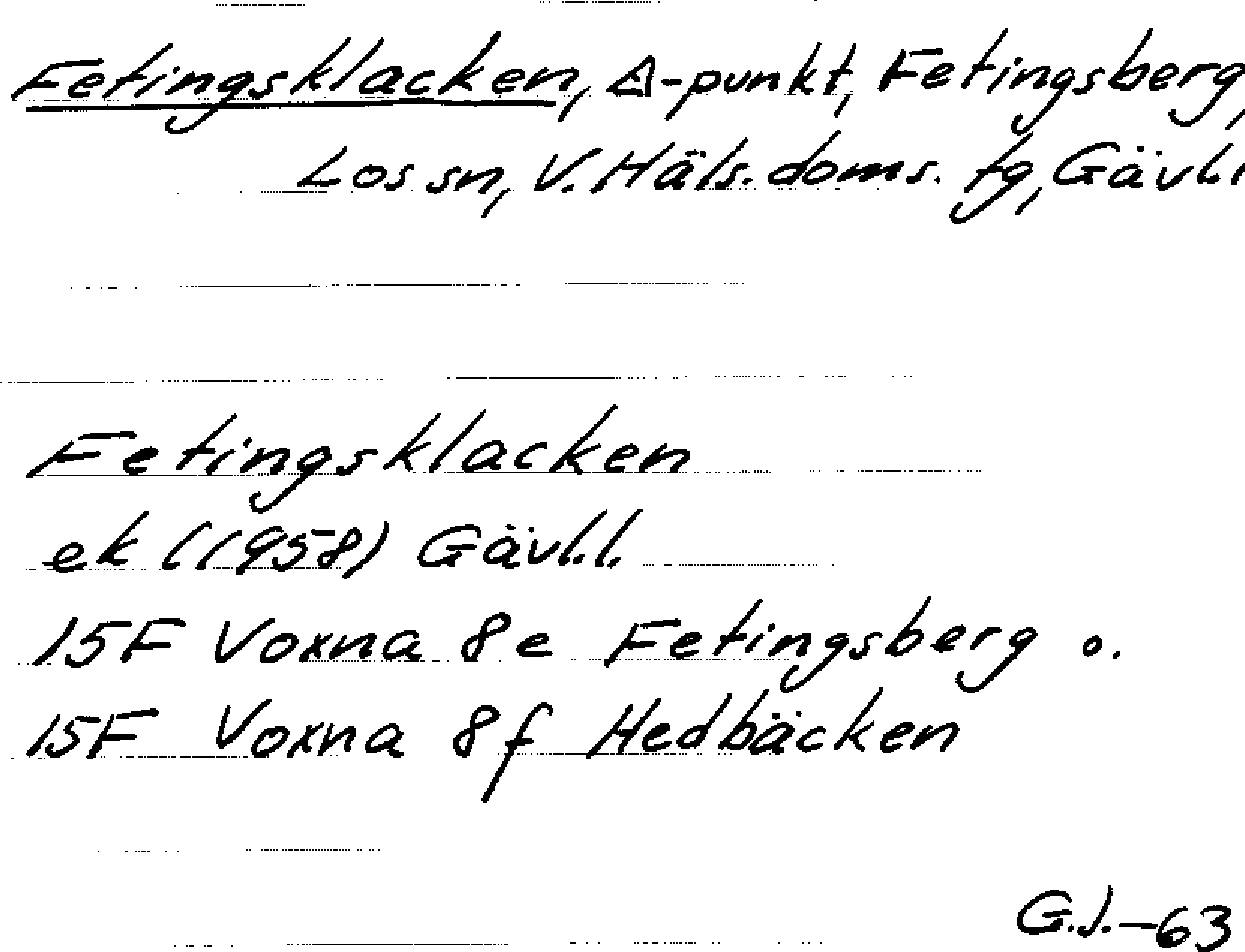 Fetingsklacken, △-punkt, Fetingsberg,
Los sn, V. Häls. doms. tg, Gävl.l
Fetingsklacken
ek (1958) Gävl.l.
15F Voxna 8e Fetingsberg o.
15F Voxna 8f Hedbäcken
G.J.-63